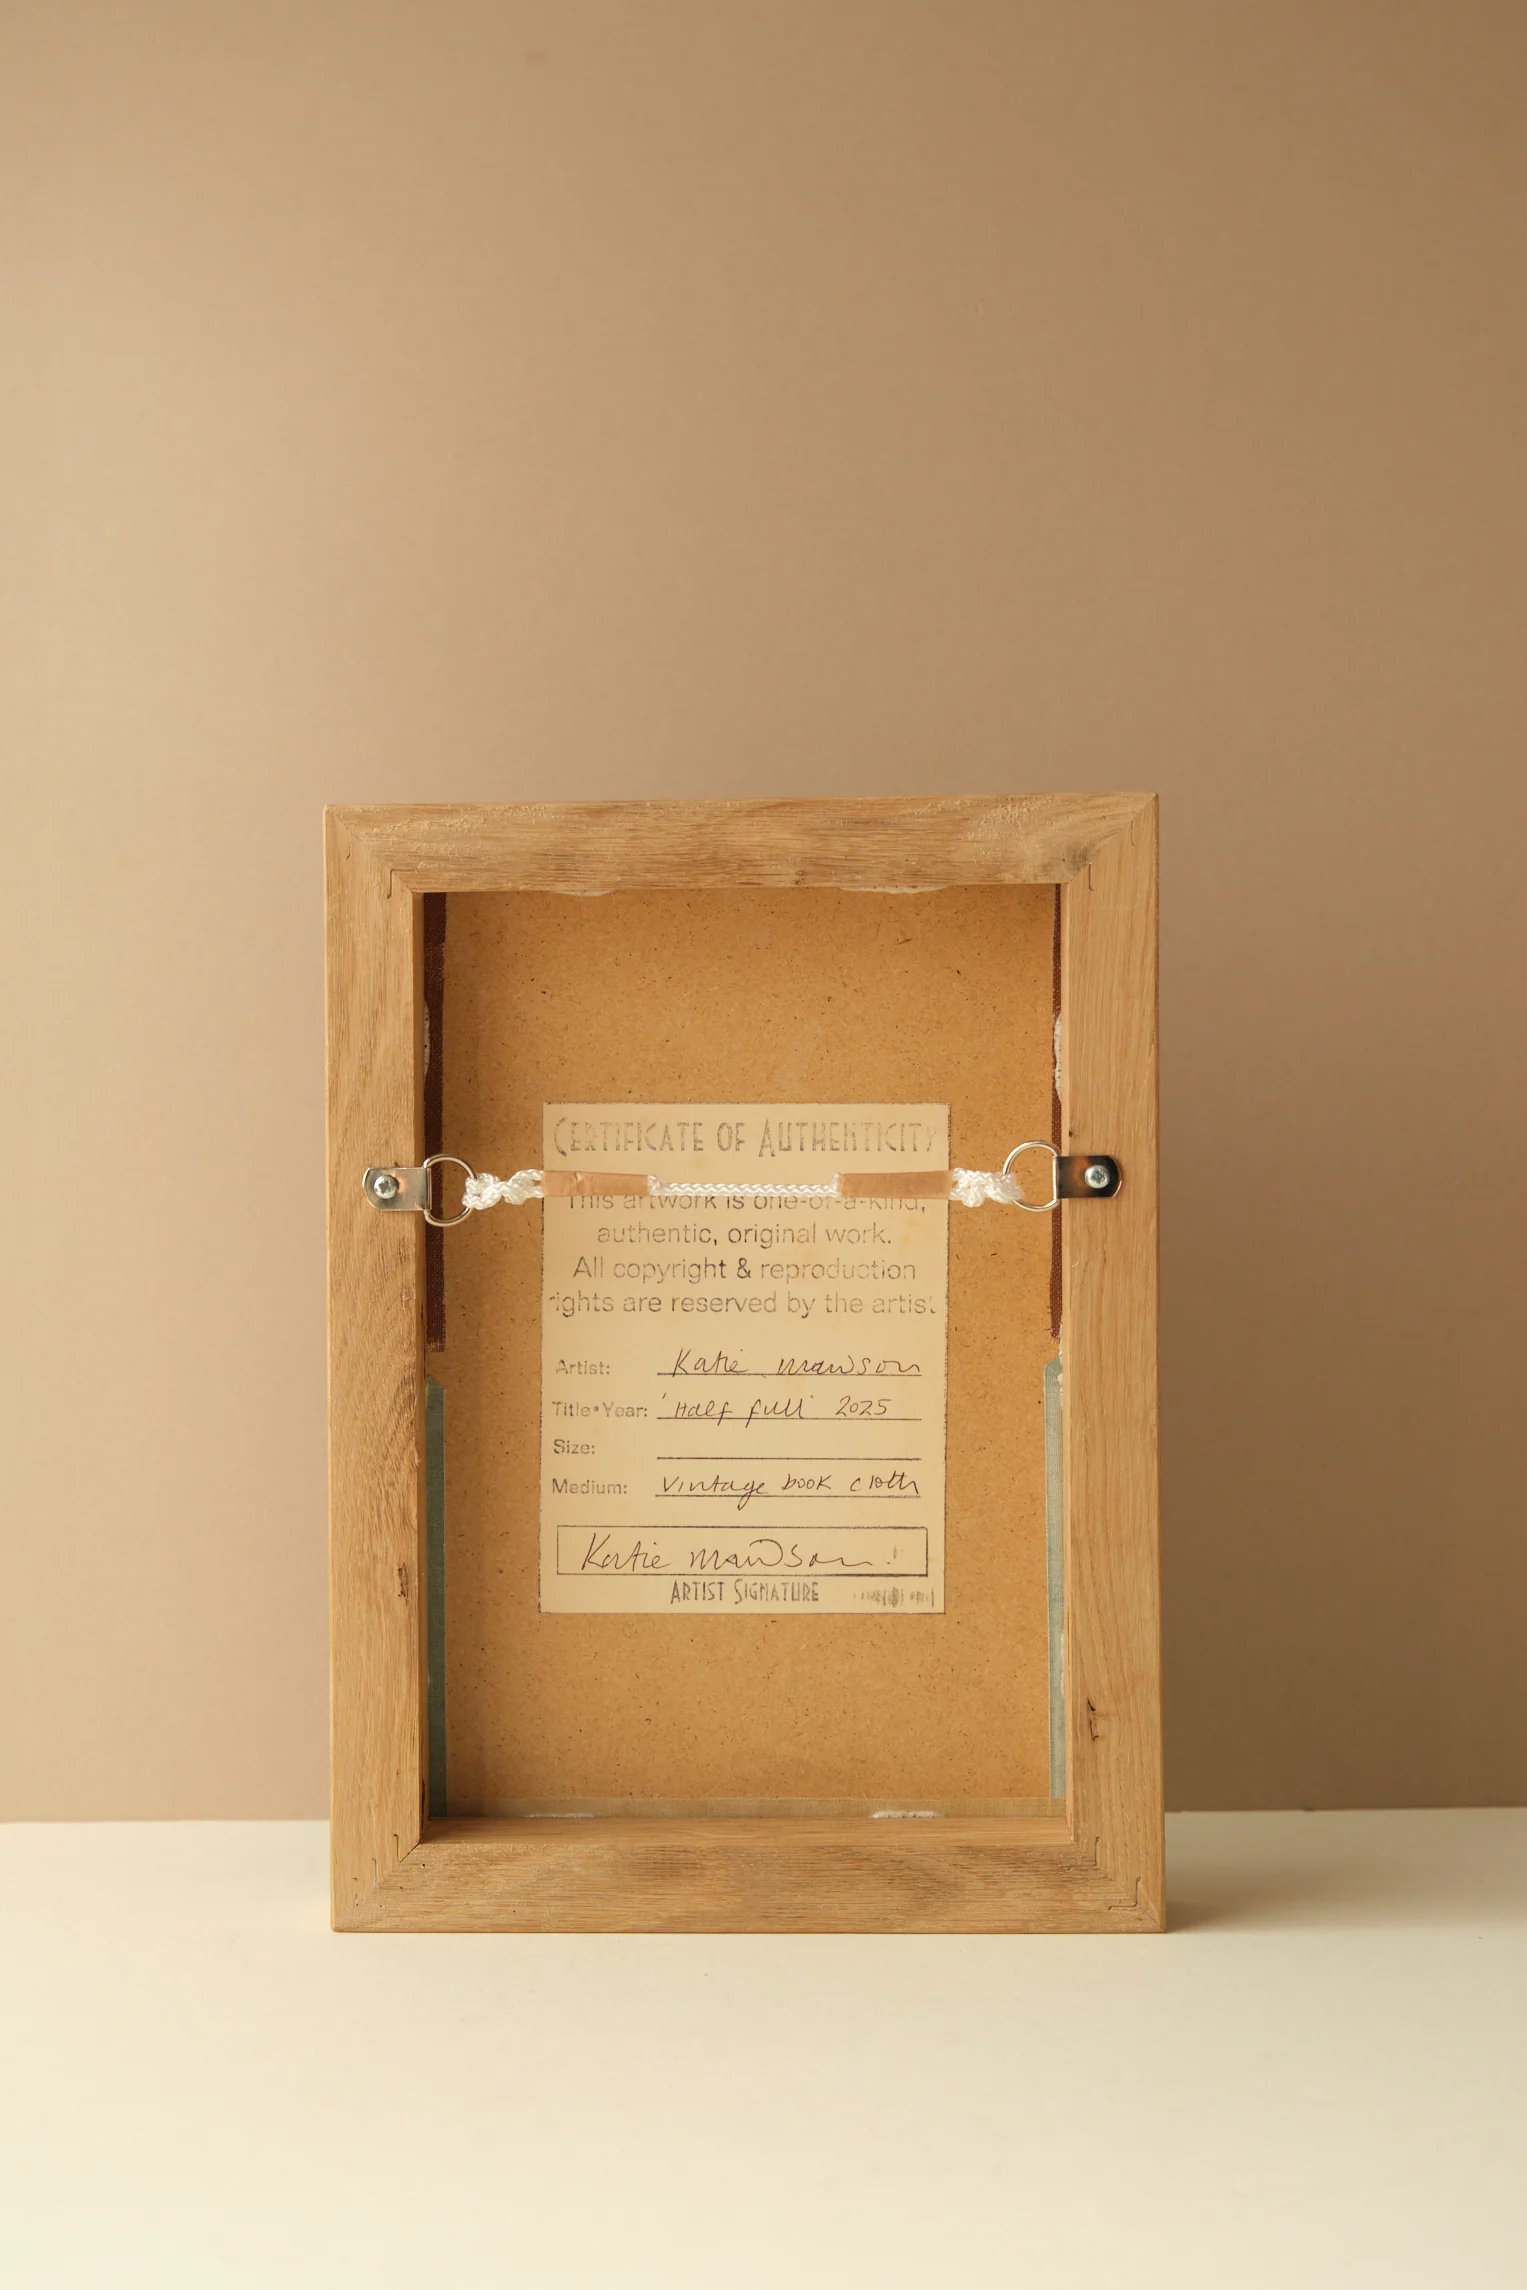 CERTIFICATE OF AUTHENTICITY
This artwork is one-of-a-kind,
authentic, original work.
All copyright & reproduction
rights are reserved by the artist
Artist: Katie Mawson
Title•Year: 'Half full' 2025
Size:
Medium: Vintage book cloth
Katie Mawson.
ARTIST SIGNATURE